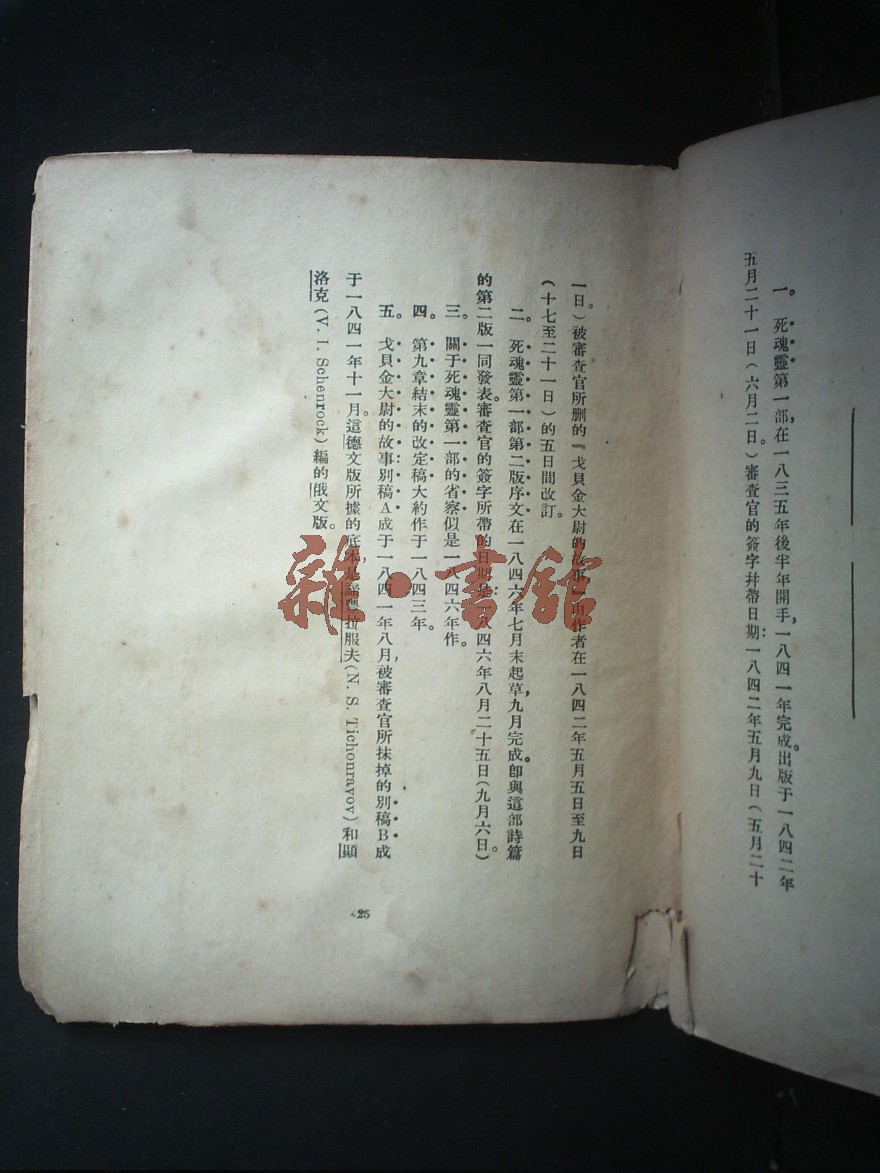 一。死魂靈第一部，在一八三五年後半年開手，一八四一年完成，出版于一八四二年
五月二十一日（六月二日）。審查官的簽字幷帶日期：一八四二年五月九日（五月二十
一日）。被審查官所刪的『戈貝金大尉的故事』由作者在一八四二年五月五日至九日
（十七至二十一日）的五日間改訂。
二。死魂靈第一部第二版序文在一八四六年七月末起草，九月完成。卽與這部詩篇
的第二版一同發表。審查官的簽字所帶的日期是：一八四六年八月二十五日（九月六日）。
三。關于死魂靈第一部的省察似是一八四六年作。
四。第九章結末的改定稿大約作于一八四三年。
五。戈貝金大尉的故事別稿：A成于一八四一年八月，被審查官所抹掉的別稿B成
于一八四一年十一月。這德文版所據的底本，是拉服夫（N. S. Tichonravov）和顯
洛克（V. I. Schenrock）編的俄文版。
425
雜·書館